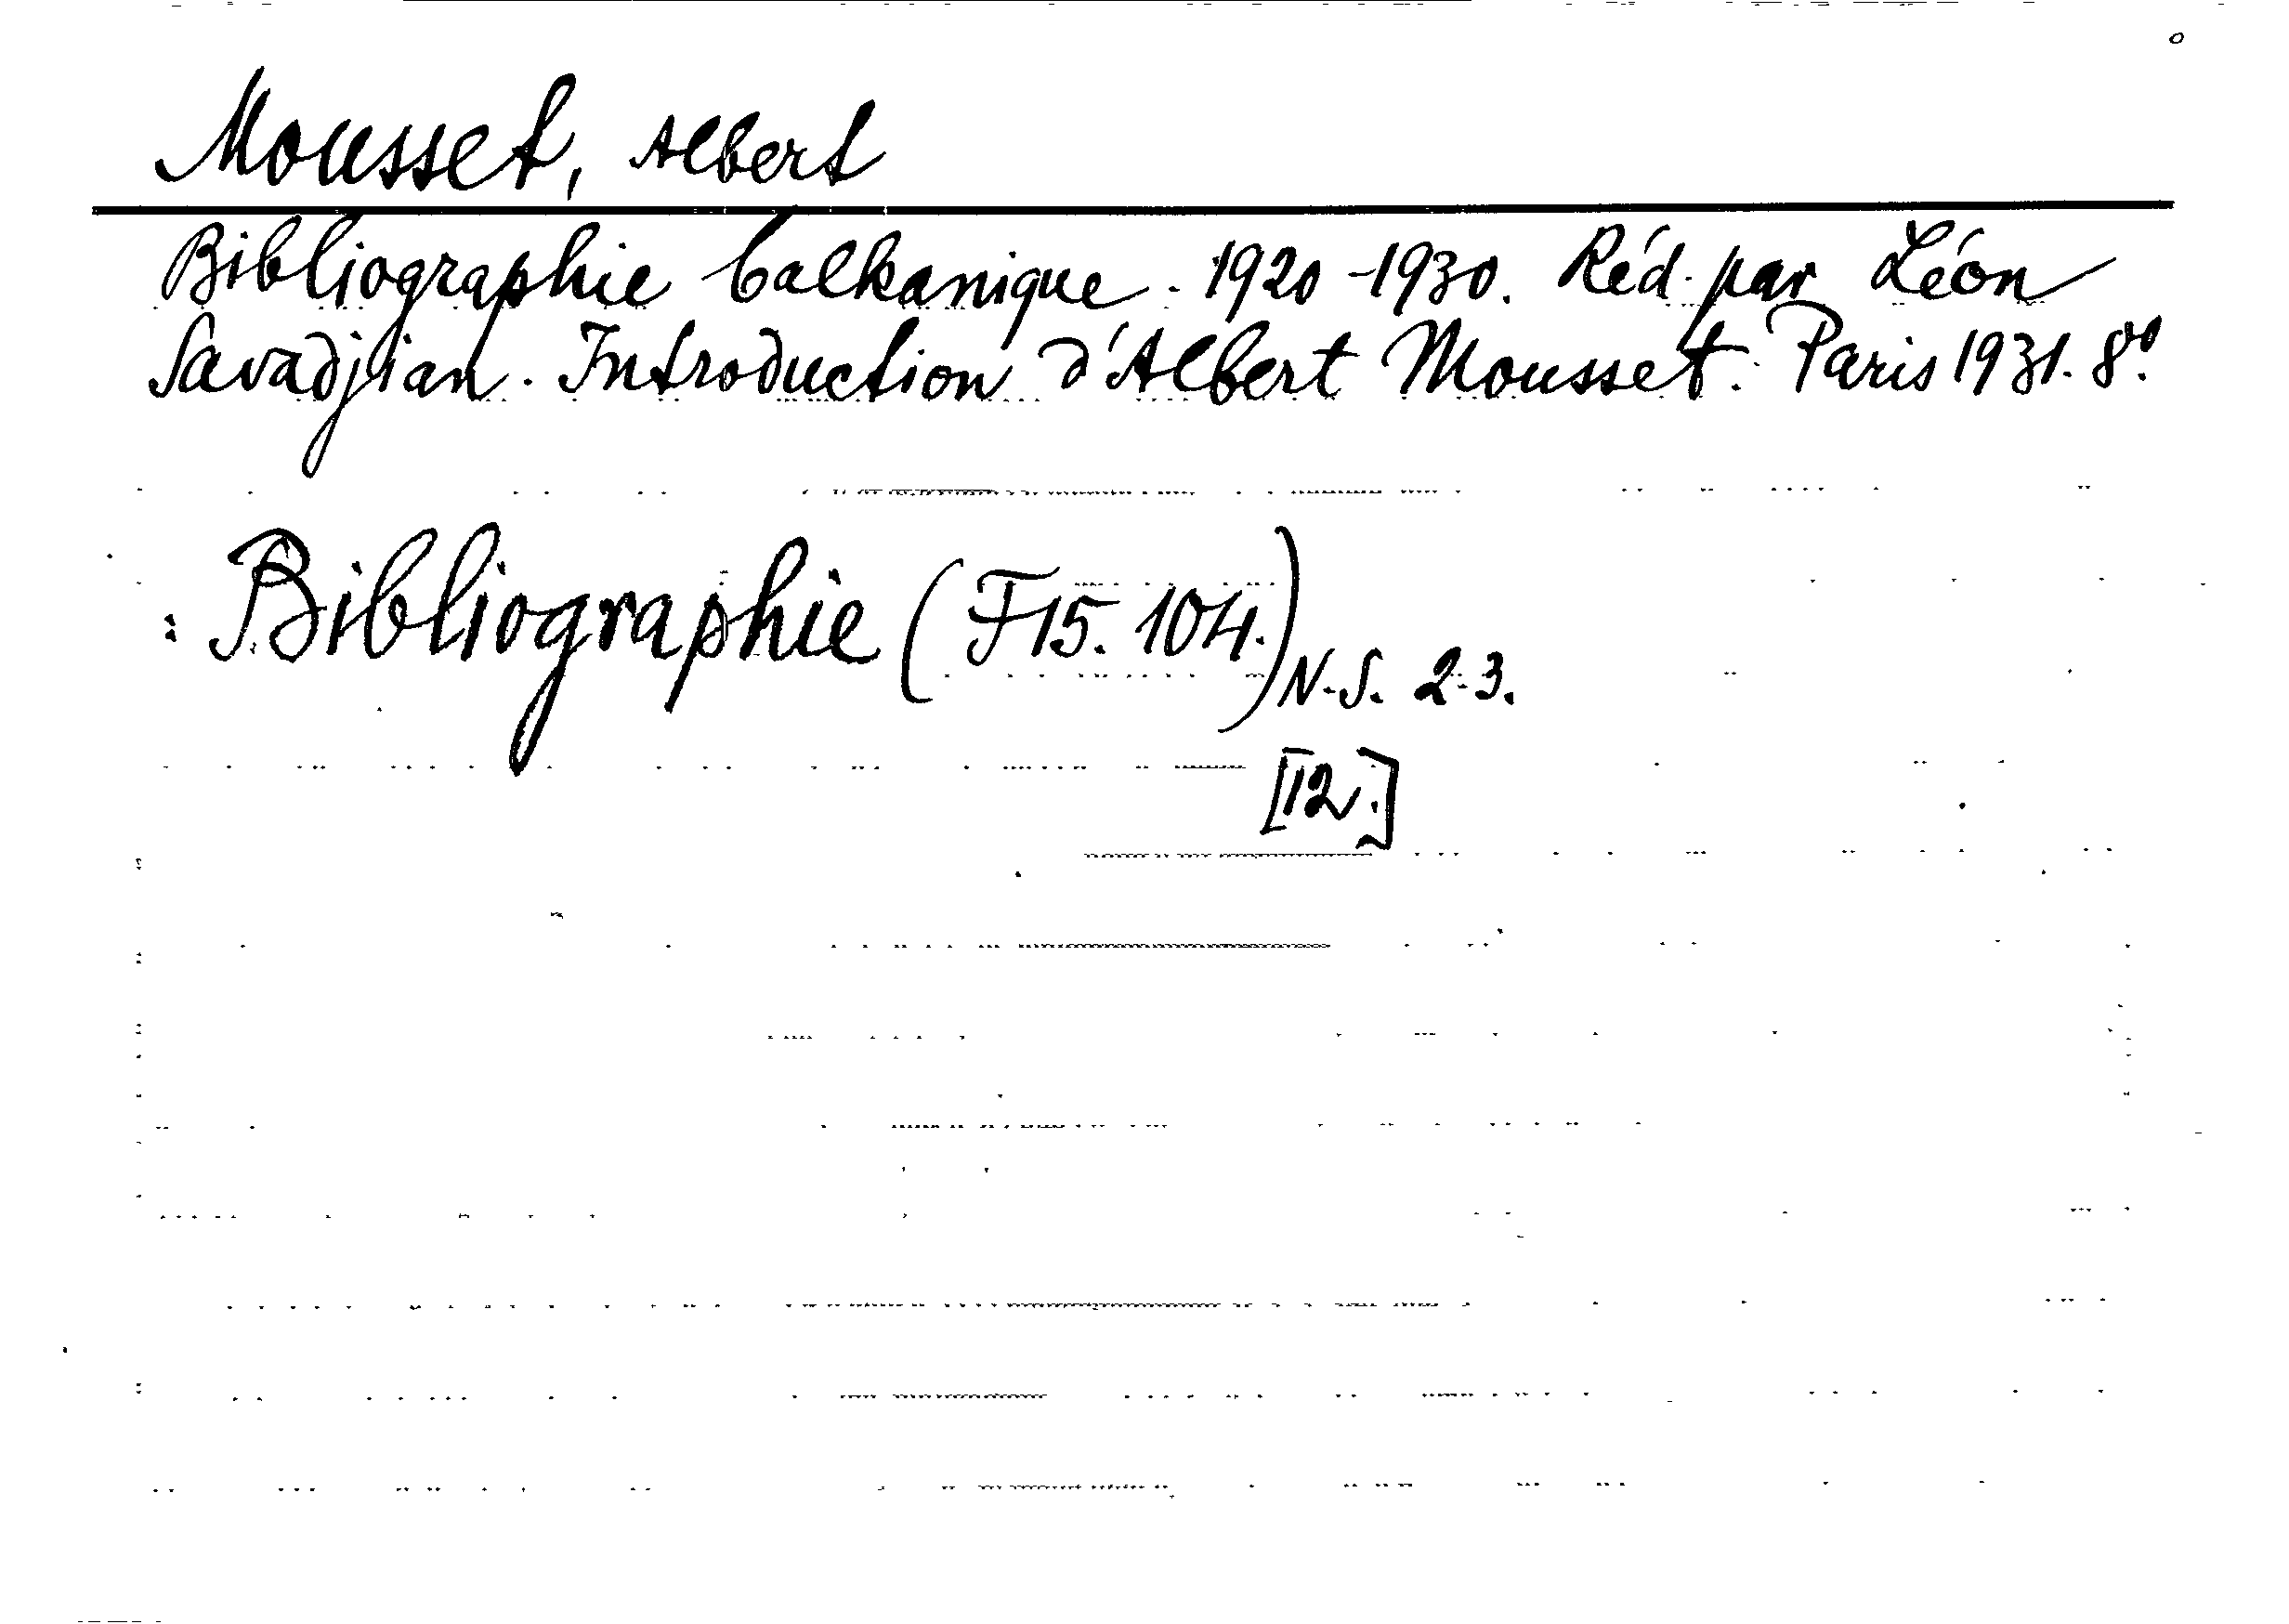 Mousset, Albert
Bibliographie balkanique. 1920-1930. Réd. par Léon
Savadjian. Introduction d'Albert Mousset. Paris 1931. 8°.
: Bibliographie (F15. 104.) N.S. 2-3.
[12.]